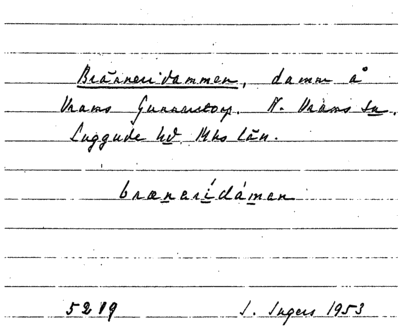 Bränneridammen, damm å
Vrams Gunnarstorp. N. Vrams sn,
Luggude hd Mhs län.
brænerídámen
5219 I. Ingers 1953